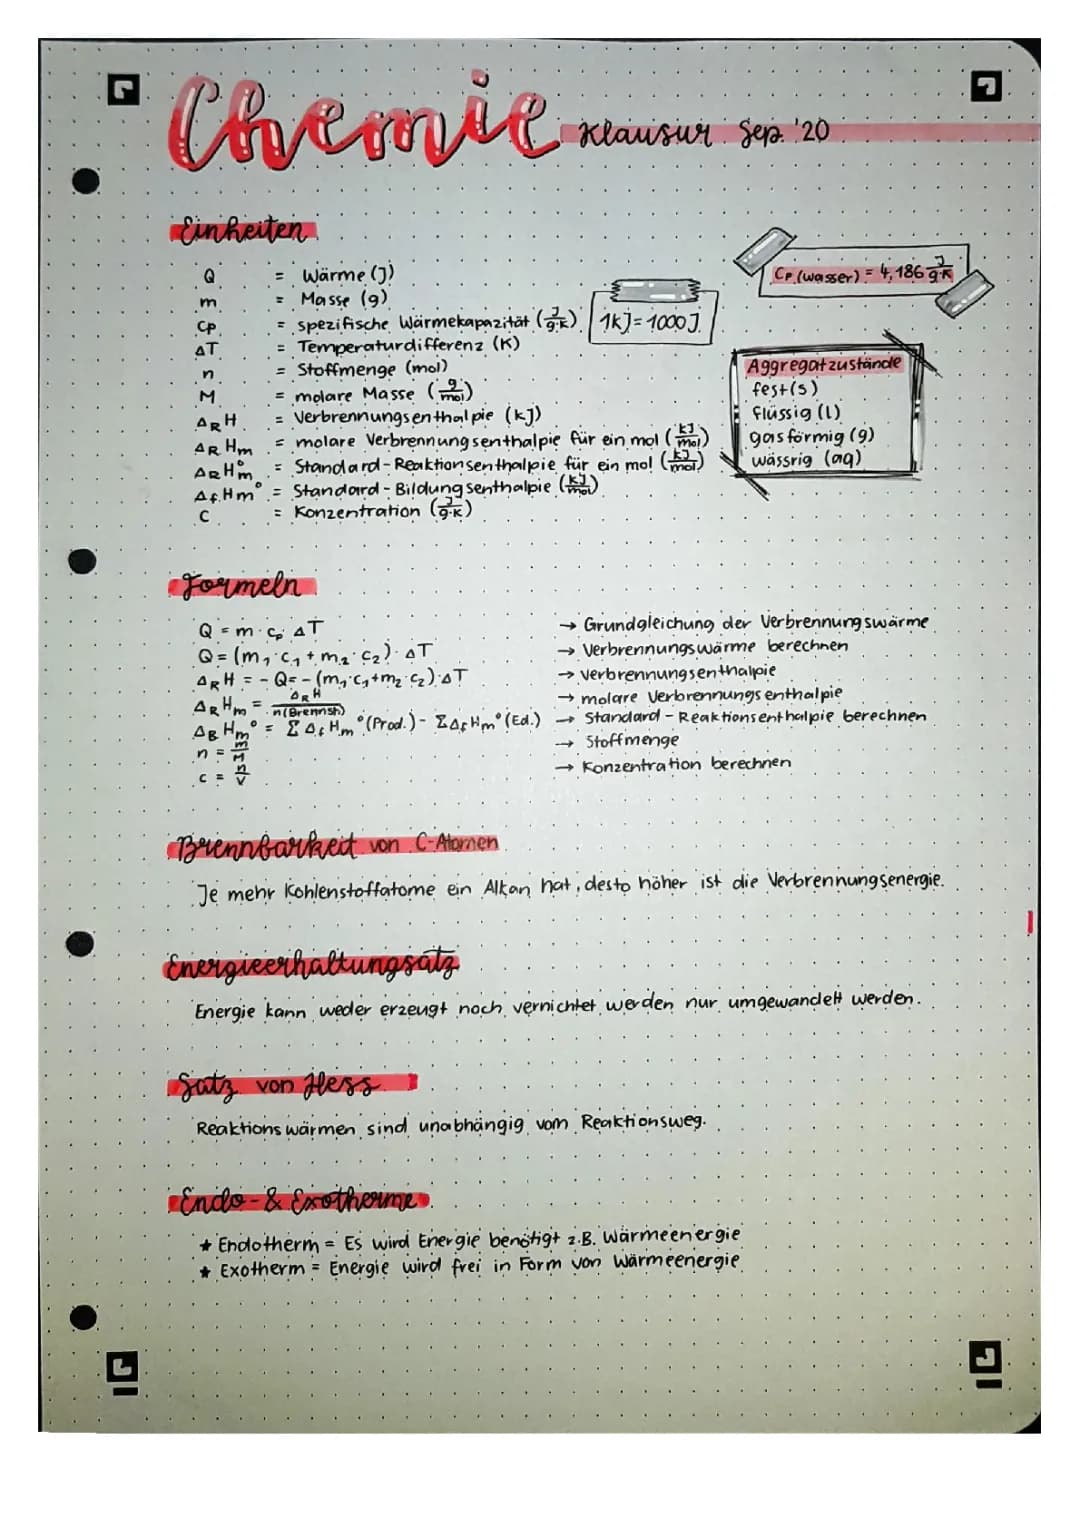 Chemie Klausur Sep. '20
Einheiten
Q = Wärme (J)
m = Masse (g)
cp = spezifische Wärmekapazität (J/g·K)
ΔT = Temperaturdifferenz (K)
n = Stoffmenge (mol)
M = molare Masse (g/mol)
ΔRH = Verbrennungsenthalpie (kJ)
ΔRHm = molare Verbrennungsenthalpie für ein mol (kJ/mol)
ΔRHm° = Standard-Reaktionsenthalpie für ein mol (kJ/mol)
ΔfHm° = Standard-Bildungsenthalpie (kJ/mol)
C = Konzentration (J/g·K)
1kJ = 1000J
Cp (wasser) = 4,186 J/g·K
Aggregatzustände
fest (s)
flüssig (l)
gasförmig (g)
wässrig (aq)
Formeln
Q = m · cp · ΔT → Grundgleichung der Verbrennungswärme
Q = (m1 · c1 + m2 · c2) · ΔT → Verbrennungswärme berechnen
ΔRH = - Q = - (m1·c1+m2·c2)·ΔT → Verbrennungsenthalpie
ΔRHm = ΔRH/n(Brennst.) → molare Verbrennungsenthalpie
ΔRHm° = ΣΔfHm°(Prod.) - ΣΔfHm°(Ed.) → Standard-Reaktionsenthalpie berechnen
n = m/M → Stoffmenge
c = n/V → Konzentration berechnen
Brennbarkeit von C-Atomen
Je mehr Kohlenstoffatome ein Alkan hat, desto höher ist die Verbrennungsenergie.
Energieerhaltungsatz
Energie kann weder erzeugt noch vernichtet werden nur umgewandelt werden.
Satz von Hess
Reaktionswärmen sind unabhängig vom Reaktionsweg.
Endo- & Exotherme
★ Endotherm = Es wird Energie benötigt z.B. Wärmeenergie
★ Exotherm = Energie wird frei in Form von Wärmeenergie